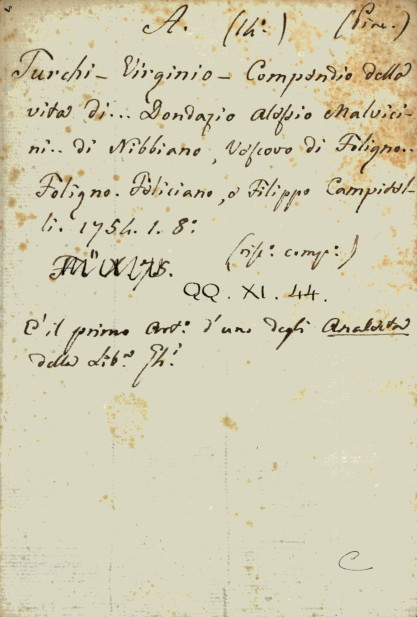 A. (Th:) (Vine.)
Turchi - Virginio - Compendio della
vita di... Dondazio Alessio Malvici-
ni.. di Nibbiano, Vescovo di Foligno..
Foligno. Feliciano, e Filippo Campitel-
li. 1754. 1. 8:
(risp: comp:)
QQ. XI. 44.
C'è il primo art: d'uno degli Analecta
della Lib: Gh:
C